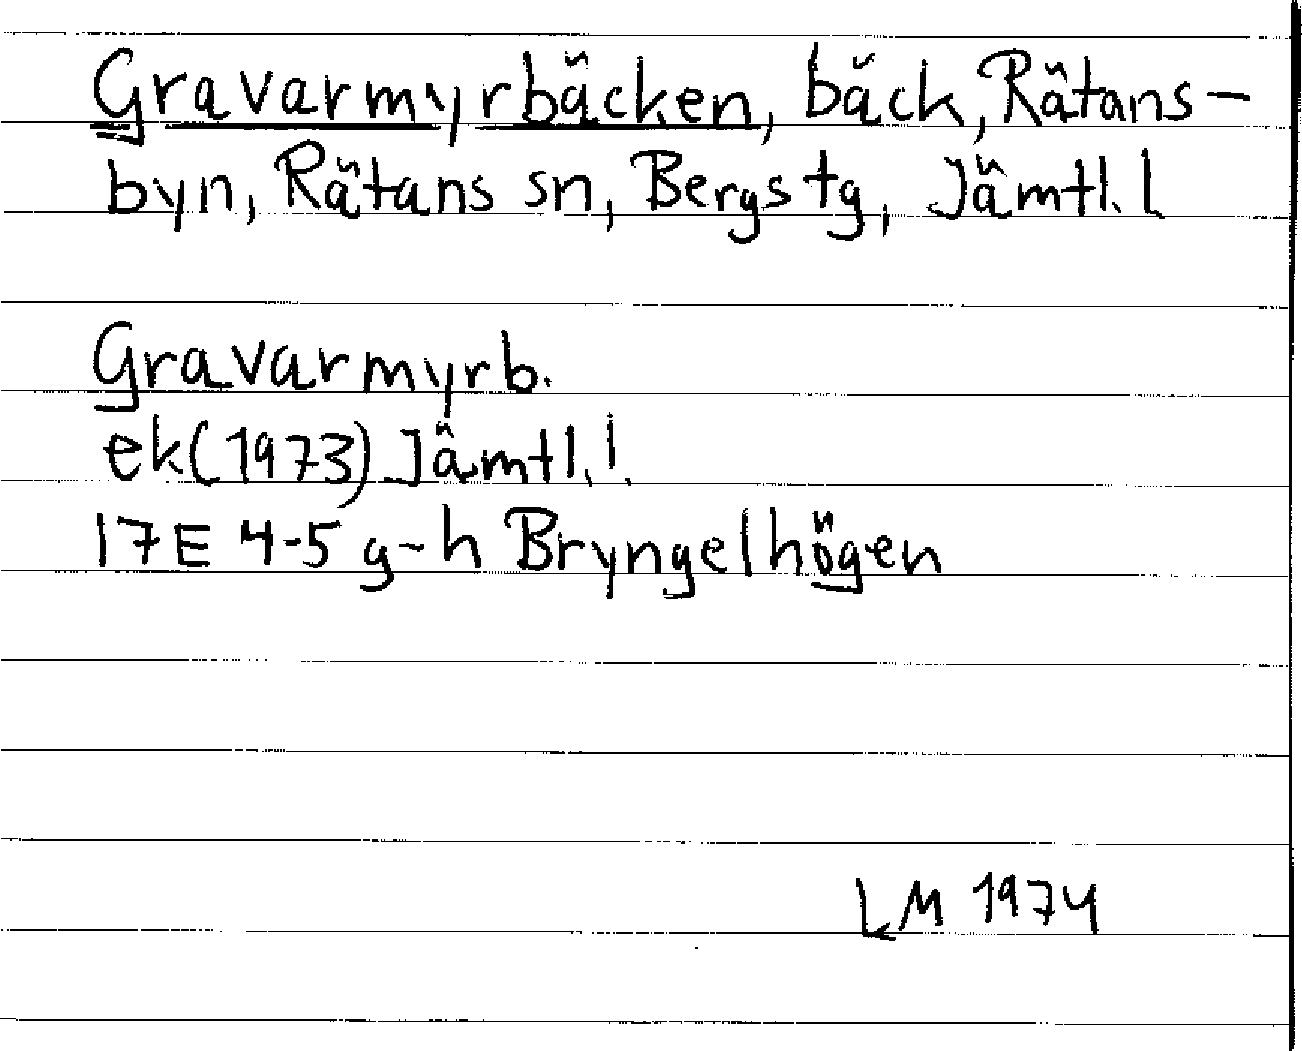 Gravarmyrbäcken, bäck, Rätans-
byn, Rätans sn, Bergs tg, Jämtl. l
Gravarmyrb.
ek(1973) Jämtl. l.
17E 4-5 g-h Bryngelhögen
LM 1974